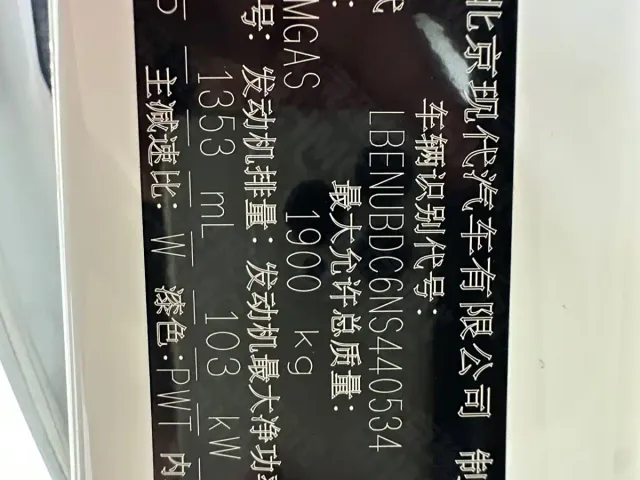 北京现代汽车有限公司
车辆识别代号:
LBENUBDC6NS440534
最大允许总质量:
MGAS 1900 kg
号: 发动机排量: 发动机最大净功
1353 mL 103 kW
主减速比: W 漆色:PWT 内